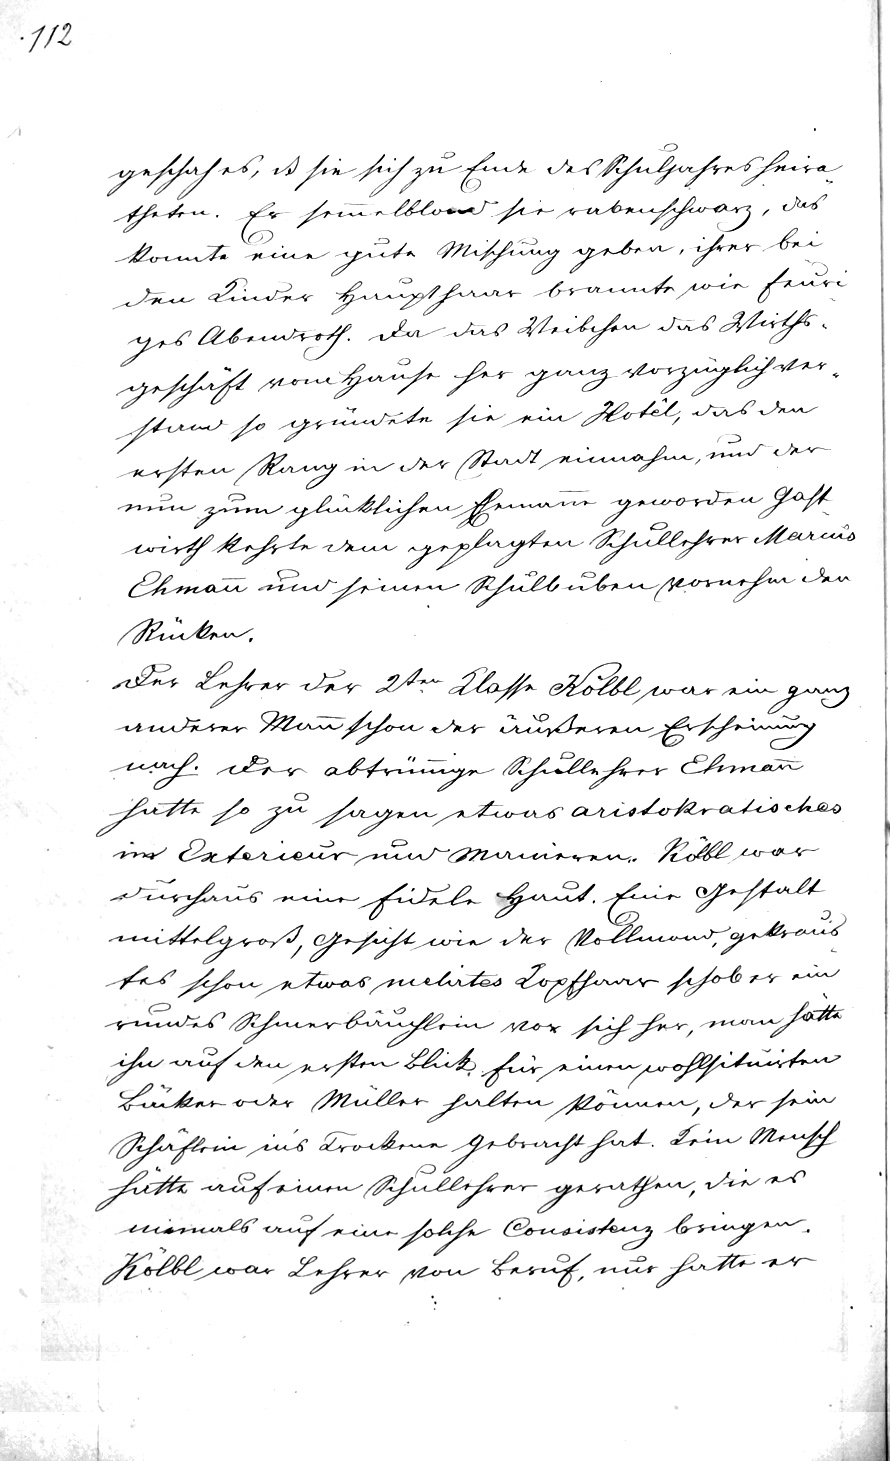 112
geschah es, ß sie sich zu Ende des Schuljahres heira
theten. Er sem̅elblond sie rabenschwarz, das
konnte eine gute Mischung geben, ihrer bei
den Kinder Haupthaar brannte wie feuri
ges Abendroth. Da das Weibchen das Wirths-
geschäft vom Hause her ganz vorzüglich ver-
stand so gründete sie ein Hotêl, das den
ersten Rang in der Stadt einnahm, und der
nun zum glücklichen Ehemañe geworden Gast
wirth kehrte dem geplagten Schullehrer Marius
Ehmañ und seinen Schulbuben vornehm den
Rücken.
Der Lehrer der 2ten Klasse Kölbl war ein ganz
anderer Mañ schon der äußeren Erscheinung
nach. Der abtrün̅ige Schullehrer Ehmañ
hatte so zu sagen etwas aristokratisches
im Exterieur und Manieren. Kölbl war
durchaus eine fidele Haut. Eine Gestalt
mittelgroß, Gesicht wie der Vollmond, gekraus
tes schon etwas melirtes Kopfhaar schob er ein
rundes Schmerbäuchlein vor sich her, man hätte
ihn auf den ersten Blick für einen wohlsituirten
Bäcker oder Müller halten können, der sein
Schäflein in's Trockene gebracht hat. Kein Mensch
hätte auf einen Schullehrer gerathen, die es
niemals auf eine solche Consistenz bringen.
Kölbl war Lehrer von Beruf, nur hatte er